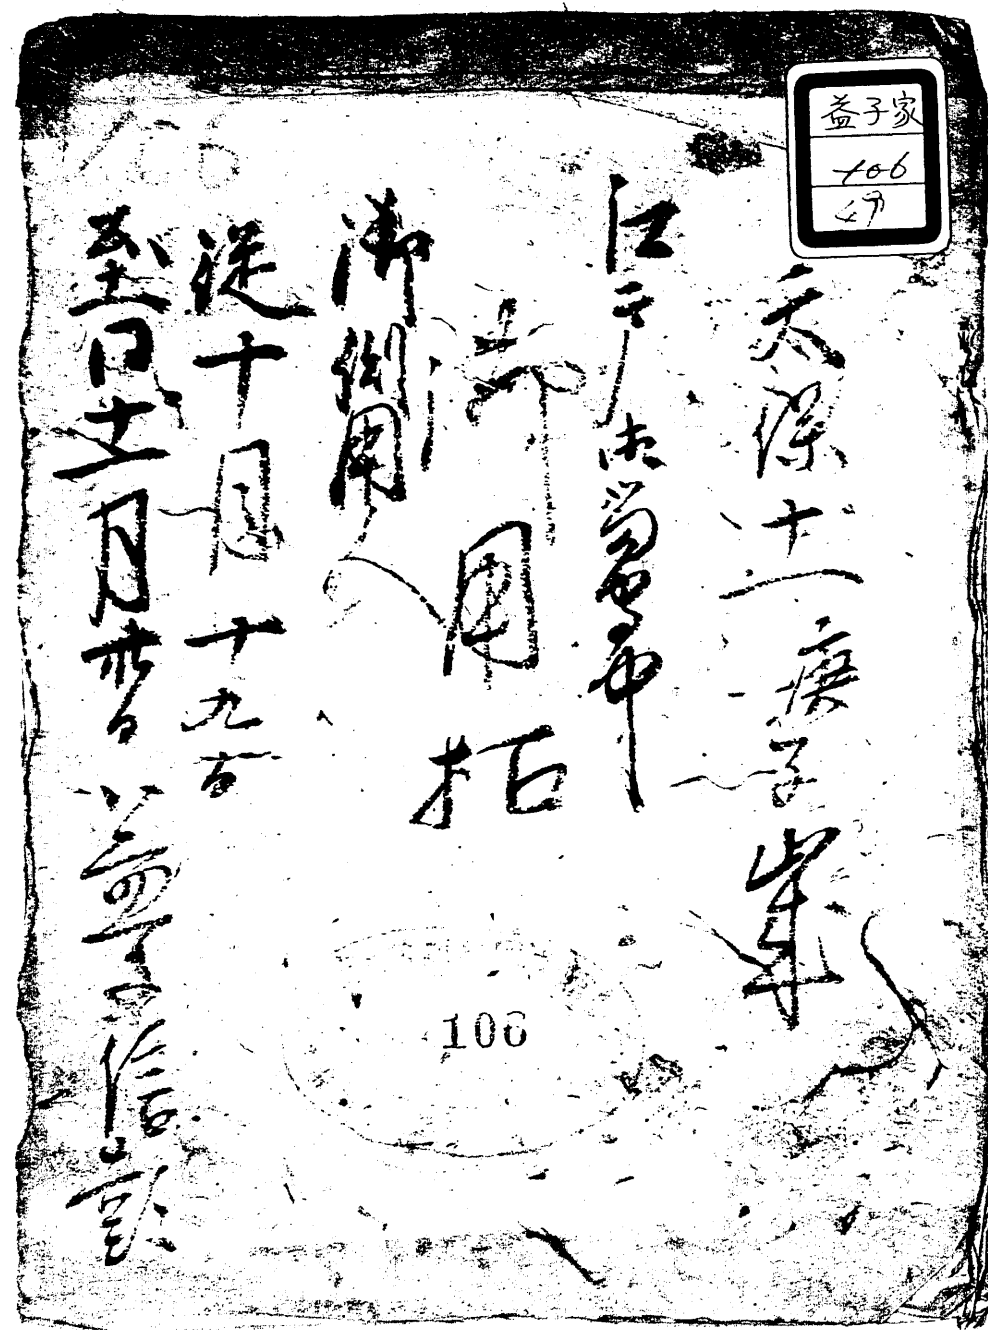 益子家
106
天保十一庚子歳
江戸御留守中
御用拍
御側用人
従十月十九日
至同十二月廿日
益子信彭
106